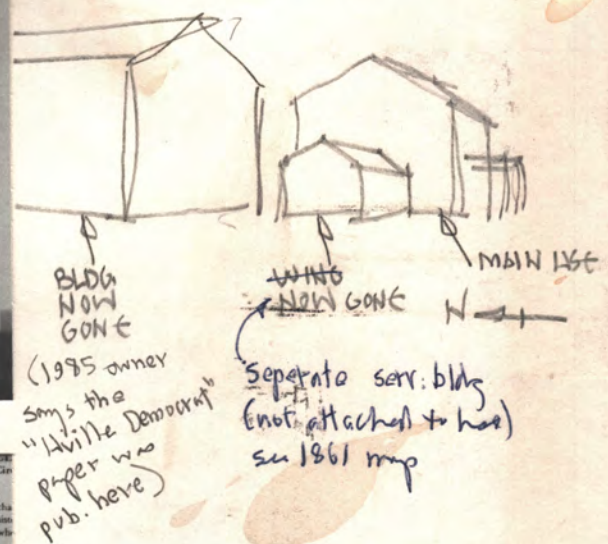 BLDG
NOW
GONE
(1985 owner
says the
"Hville Democrat"
paper was
pub. here)
WING
NOW GONE
Seperate serv. bldg
(not attached to hse)
see 1861 map
MAIN HSE
N